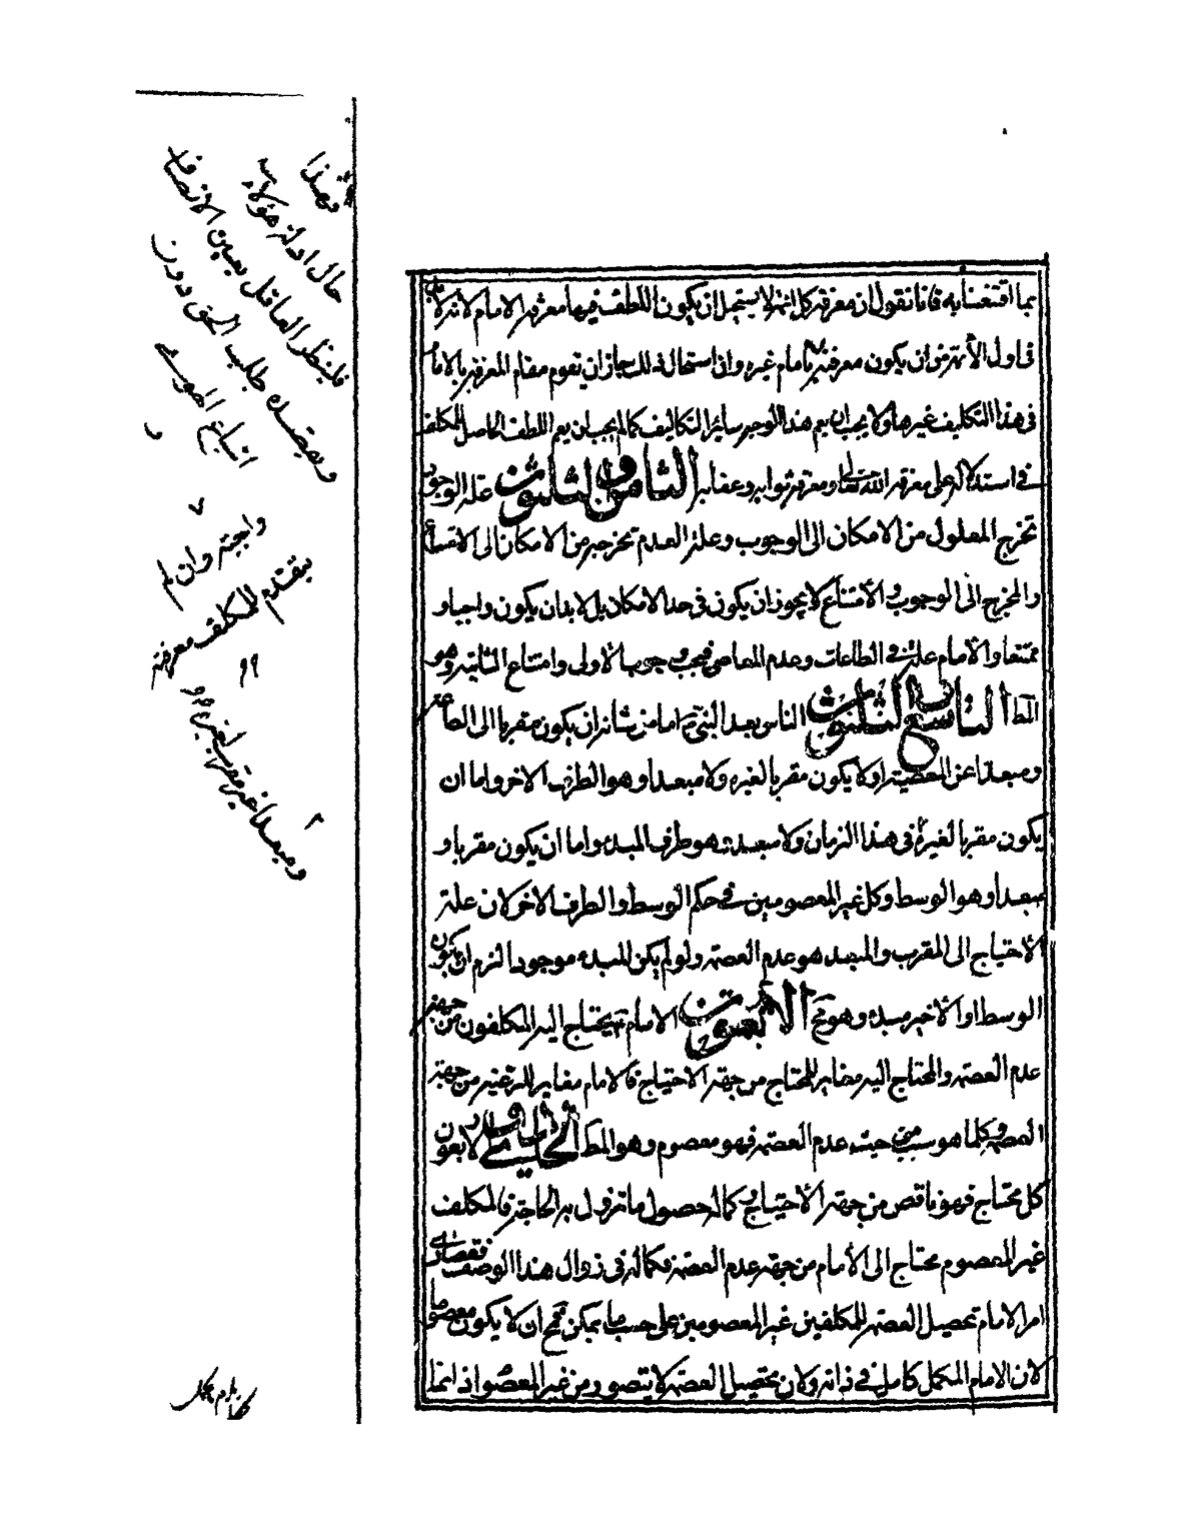 بما اقتنعنا به فانا نقول ان معرفة كل ائمة لا يستحيل ان يكون اللطف فيها معرفة الامام لانه لا
في اول الأئمة من ان يكون معرفته بامام غيره وان استحال ذلك جاز ان تقوم مقام المعرفة بالامام
في هذا التكليف غيرها ولا يجب ان يعم هذا الوجه سائر التكاليف كما لم يجب ان يعم اللطف الحاصل للمكلف
في استدلاله على معرفة الله تعالى ومعرفة ثوابه وعقابه الثامن والثلثون علة الوجود
تخرج المعلول من الامكان الى الوجوب وعلة العدم تخرجه من الامكان الى الامتناع
والمخرج الى الوجوب والأمتناع لا يجوز ان يكون في حد الامكان بل لا بد ان يكون واجبا و
ممتنعا والأمام علة في الطاعات وعدم المعاصي فيجب وجوب الأولى وامتناع الثانية وهو
المط التاسع والثلثون الناس بعد النبي ص اما من شانه ان يكون مقربا الى الطاعة
ومبعدا عن المعصية او لا يكون مقربا لغيره ولا مبعدا وهو الطرف الاخر واما ان
يكون مقربا لغيره في هذا الزمان ولا مبعد له وهو طرف المبدء واما ان يكون مقربا و
مبعدا وهو الوسط وكل غير المعصومين في حكم الوسط والطرف الاخر لان علة
الأحتياج الى المقرب والمبعد هو عدم العصمة ولو لم يكن للمبدء موجودا لزم ان يكون
الوسط او الأخير مبدء وهو مح الأربعون الامام يحتاج اليه المكلفون من جهة
عدم العصمة والمحتاج اليه مغاير للمحتاج من جهة الاحتياج فالامام مغاير للرعية من جهة
العصمة وكلما هو سبب من حيث عدم العصمة فهو معصوم وهو المط الحادي والاربعون
كل محتاج فهو ناقص من جهة الأحتياج وكماله حصول ما تزول به الحاجة فالمكلف
غير المعصوم محتاج الى الأمام من جهة عدم العصمة فكماله في زوال هذا الوصف فقصارى
امر الامام تحصيل العصمة للمكلفين غير المعصومين على حسب ما يمكن فمح ان لا يكون معصوما
لان الامام المكمل كامل في ذاته ولان تحصيل العصمة لا يتصور من غير المعصوم اذ انما
فهذا
حال ادلة هؤلاء
فلينظر العاقل بعين الانصاف
ويقصد طلب الحق دون
اتباع الهوى
واجبة وان لم
يتقدم للمكلف معرفة
ومبعدا غير مقرب لغيره